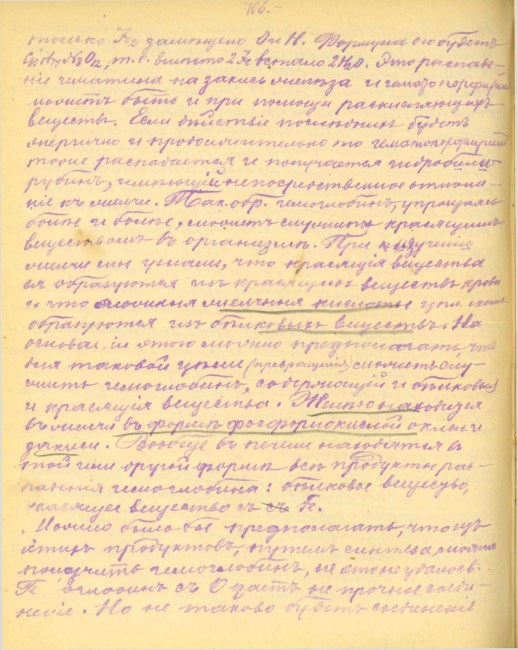 166.-
только Fe замѣщено О и Н. Формула его будетъ
N₂O₁₂, т. е. вмѣсто 2 Fe встало 2 H₂O. Это распаде-
ніе гематина на закись желѣза и гематопорфиринъ
можетъ быть и при помощи раскисляющихъ
веществъ. Если дѣйствіе послѣднихъ будетъ
энергично и продолжительно то гематопорфиринъ
тоже распадается и получается гидробили-
рубинъ, имѣющій непосредственное отноше-
ніе къ желчи. Так. обр. гемоглобинъ, упрощаясь
болѣе и болѣе, можетъ служить красящимъ
веществомъ въ организмѣ. При изученіи
желчи мы узнаемъ, что красящія вещества
ея образуются изъ красящихъ веществъ крови
и что желчныя кислоты
образуются изъ бѣлковыхъ веществъ. На
основаніи этого можно предполагать, что
для таковой цѣли (превращенія) можетъ слу-
жить гемоглобинъ, содержащій и бѣлковыя
и красящія вещества. Желѣзо находится
въ желчи въ формѣ фосфорнокислой окиси и
закиси. Вообще въ печени находятся въ
той или другой формѣ всѣ продукты рас-
паденія гемоглобина: бѣлковое вещество,
красящее вещество
Можно было бы предполагать, что изъ
этихъ продуктовъ, путемъ синтеза можно
получить гемоглобинъ, но это не удалось.
Гемоглобинъ съ О даетъ не прочное соеди-
неніе. Но не таково будетъ соединеніе